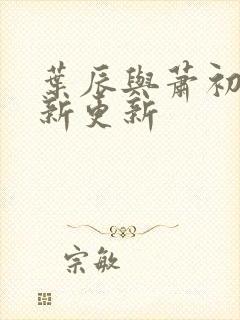 葉辰與蕭初
新更新
宗敏